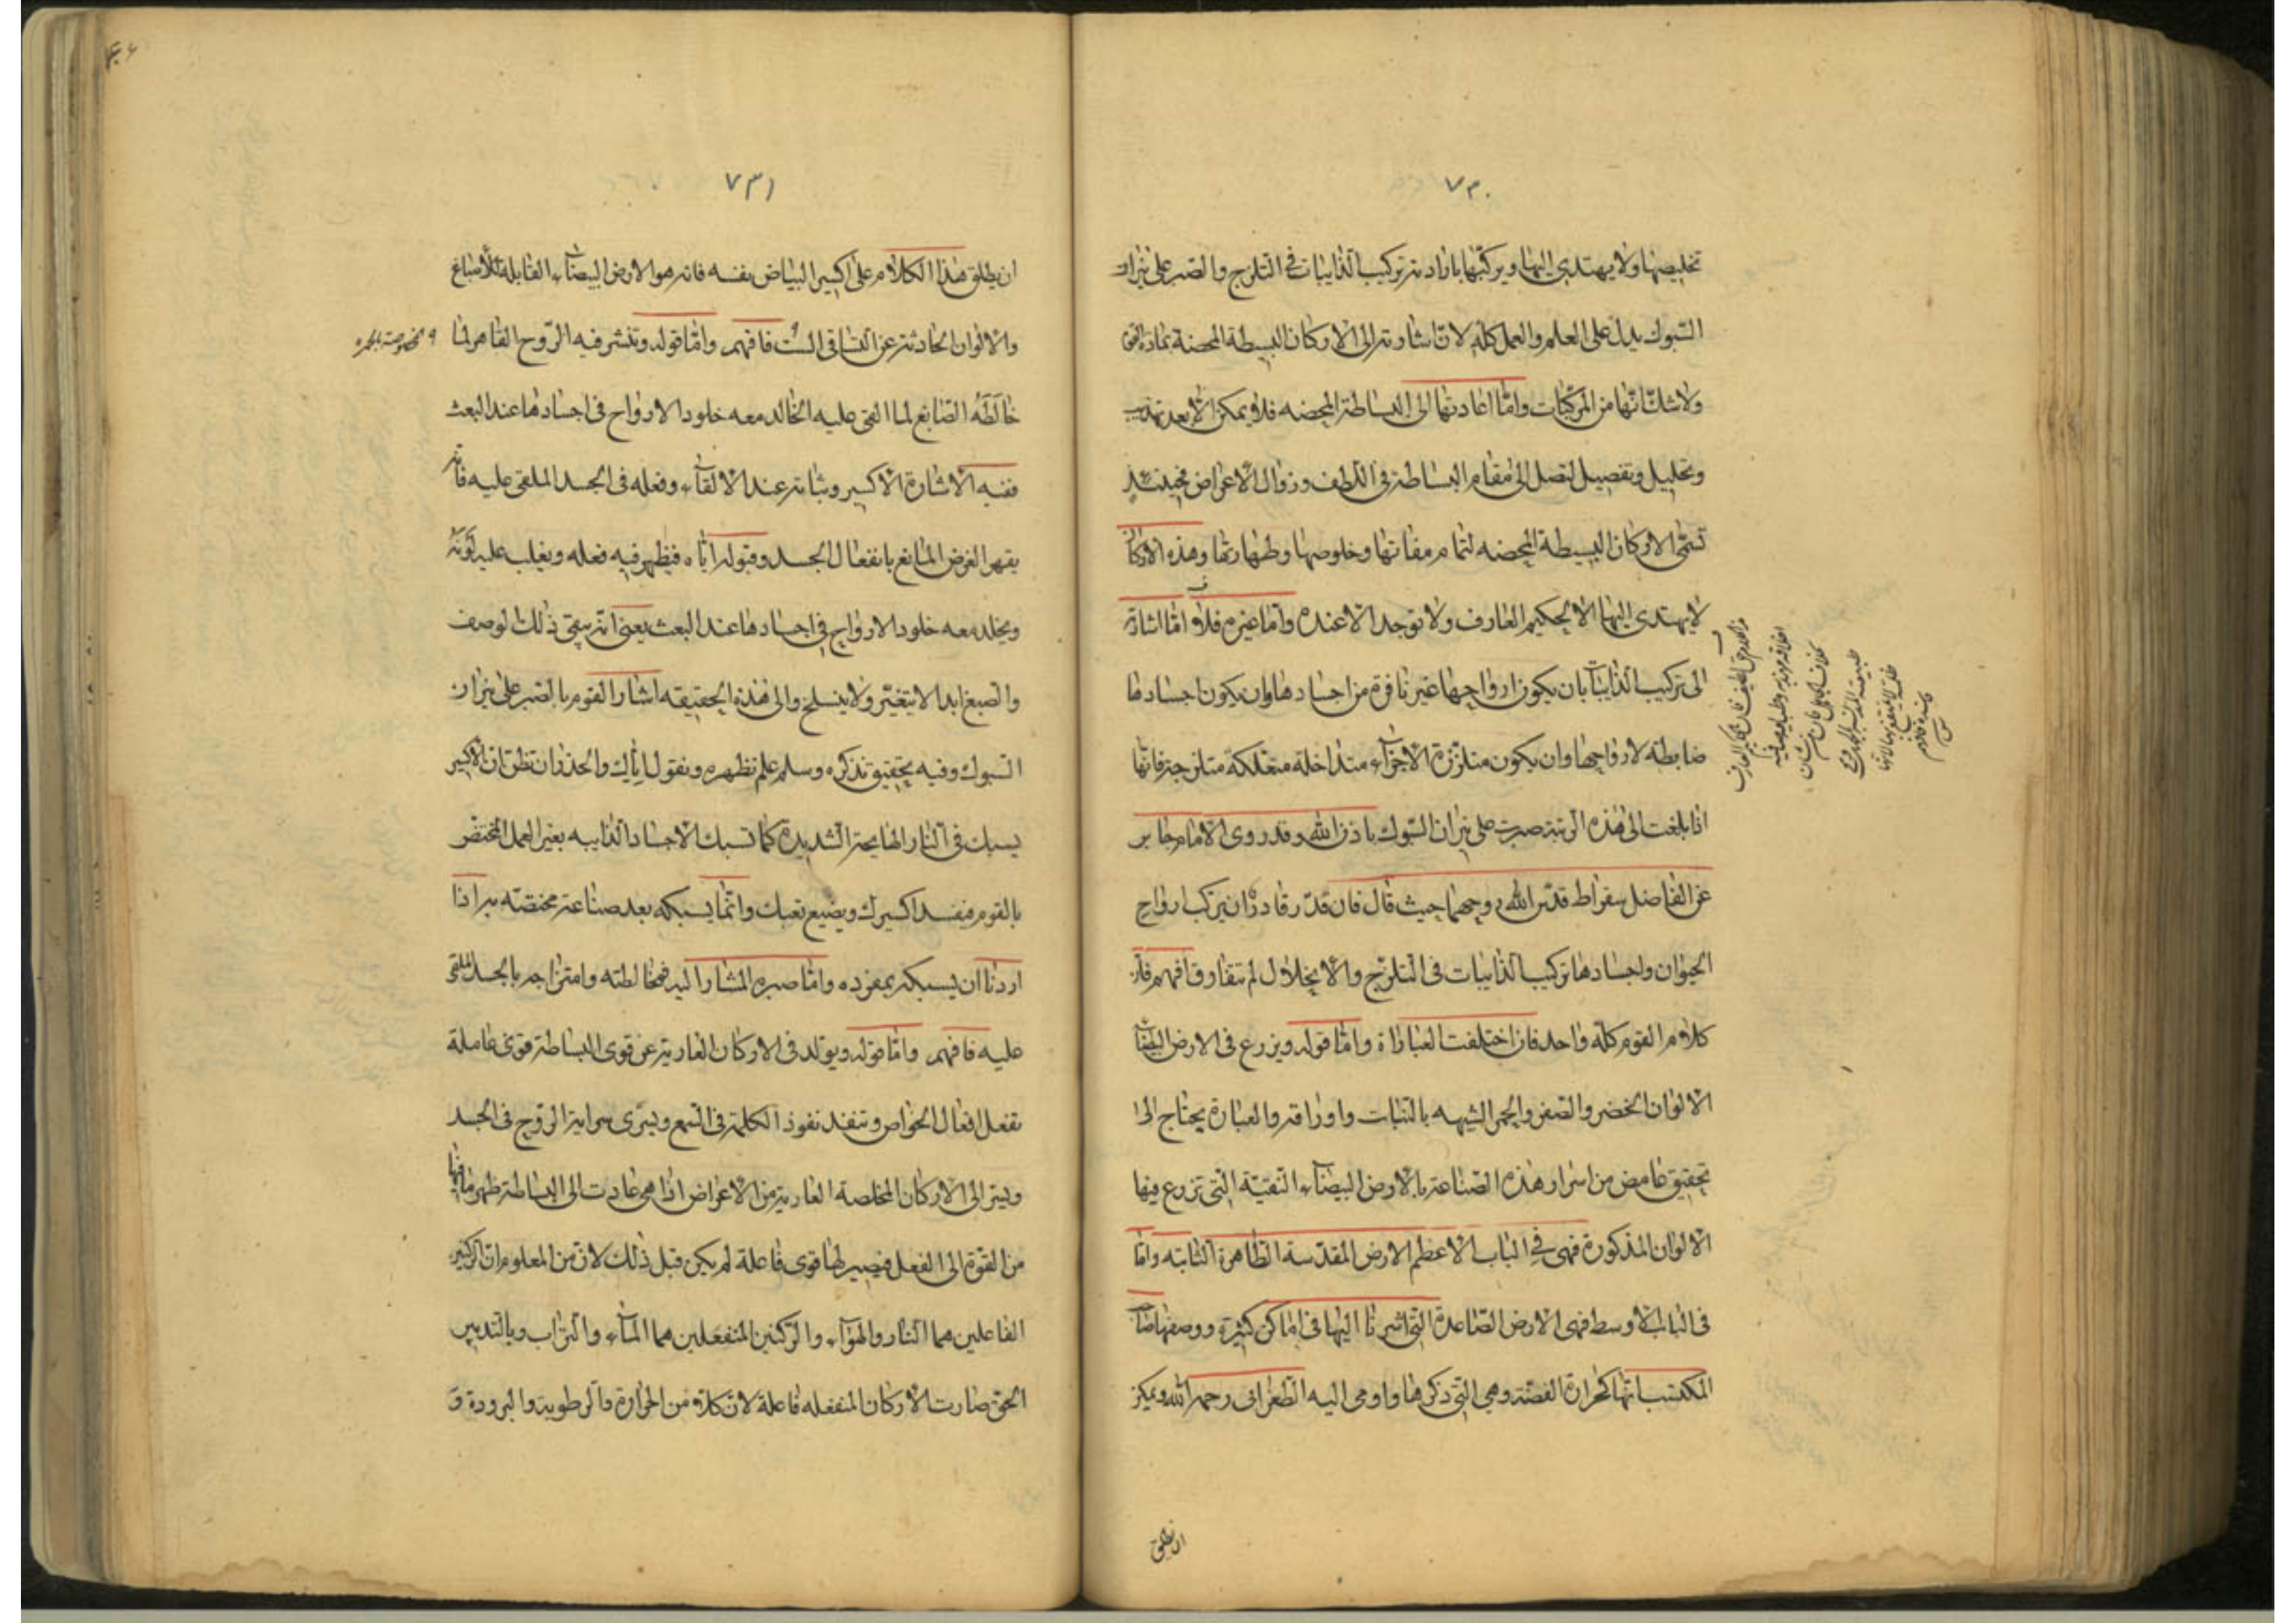 ٧٣٠
تخليصها ولا يهتدى اليها ويركبها باراد تركيب الذايبات فى التلزج والصبر على نيران
السبوك يدل على العلم والعمل كله لان اشارته الى الاركان البسيطة المحضة
ولا شك انها من المركبات واما اعادتها الى البساطة المحضه فلا يمكن الا بعد تهذيب
وتحليل وتفصيل لتصل الى مقام البساطة فى اللطف وزوال الاعراض فحينئذ
تسمى الاركان البسيطة المحضه لتمام صفاتها وخلوصها وطهارتها وهذه الاركان
لا يهتدى اليها الا الحكيم العارف ولا توجد الا عنده واما غيره فلا واما اشارته
الى تركيب الذايبات بان يكون ارواحها غير نافرة من اجسادها وان يكون اجسادها
ضابطه لارواحها وان يكون متلززة الاجزاء متداخلة متعلكة متلزجة فانها
اذا بلغت الى هذه الرتبة صبرت على نيران السبوك باذن الله وقد روى الامام جابر
عن الفاضل سقراط قدس الله روحهما حيث قال فان قدر قادر ان يركب ارواح
الحيوان واجسادها تركيب الذايبات فى التلزج والانحلال لم تتفارق فافهم فان
كلام القوم كله واحد فان اختلفت العباراة واما قوله ويزرع فى الارض البيضاء
الالوان الخضر والصفر والحمر الشبيهه بالنبات واوراقه والعبارة يحتاج الى
تحقيق غامض من اسرار هذه الصناعة بالارض البيضاء النقيّة التى تزرع فيها
الالوان المذكورة فهى فى الباب الاعظم الارض المقدسة الطاهرة الثابته واما
فى الباب الاوسط فهى الارض الصاعدة التى اشرنا اليها فى اماكن كثيرة ووصفها صاحب
المكتسب انها كحرارة الفضة وهى التى ذكرها واومى اليه الطغرائى رحمه الله ويمكن
ان يطلق
٧٣١
ان يطلق هذا الكلام على اكسير البياض بنفسه فانه هو الارض البيضاء القابله للأصباغ
والالوان الحادثة عن التساقى الست فافهم واما قوله وتنشر فيه الروح القاهر لما
خالطه الصابغ لما القى عليه الخالد معه خلود الارواح فى اجسادها عند البعث
ففيه الاشارة الاكسير وثباته عند الالقاء وفعله فى الجسد الملقى عليه فانه
يقهر العرض المانع بانفعال الجسد وقبوله اياه فيظهر فيه فعله ويغلب عليه لونه
ويخلد معه خلود الارواح فى اجسادها عند البعث يعنى انه يبقى ذلك الوصف
والصبغ ابدا لا يتغيّر ولا ينسلخ والى هذه الحقيقه اشار القوم بالصبر على نيران
السبوك وفيه تحقيق نذكره وسلم علم نظهره ونقول اياك والحذر ان تظن ان الاكسير
يسبك فى النار الهايجة الشديدة كما تسبك الاجساد الذايبه بغير العمل المختص
بالقوم فيفسد اكسيرك ويضيع تعبك وانما يسبكه بعد صناعة مختصّه به اذا
اردنا ان يسبكه بمفرده واما صبره المشار اليه فمخالطته وامتزاجه بالجسد الملقى
عليه فافهم واما قوله ويولد فى الاركان العارية عن قوى البساطة قوى فاعلة
تفعل افعال الخواص وتنفد نفوذ الكلمة فى السمع ويسرى سراية الروح فى الجسد
ويسر الى الاركان المخلصة العارية من الاعراض اذا هى عادت الى البساطة ظهر ما فيها
من القوة الى الفعل فيصير لها قوى فاعلة لم يكن قبل ذلك لان من المعلوم ان الركنين
الفاعلين هما النار والهواء والركنين المنفعلين هما الماء والتراب وبالتدبير
الحق صارت الاركان المنفعله فاعلة لان كلا من الحرارة والرطوبة والبرودة و